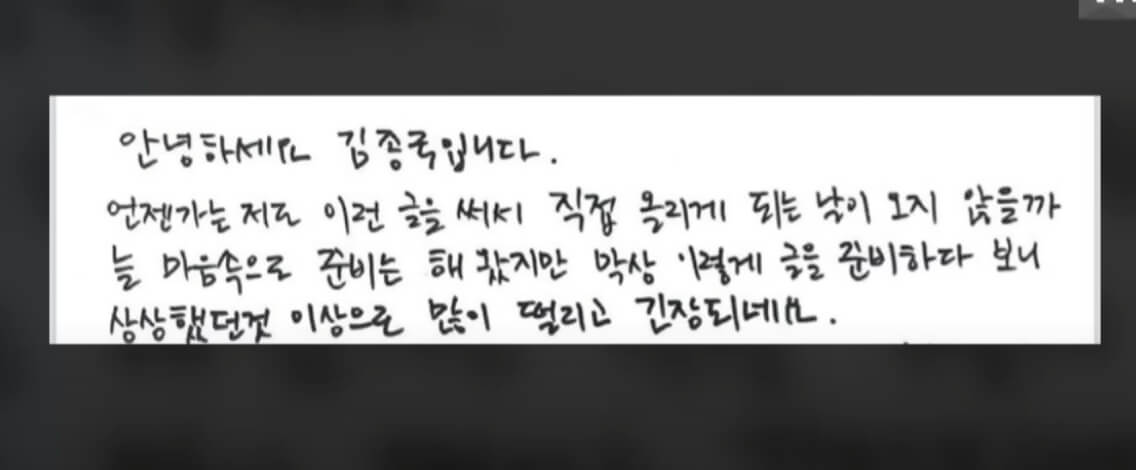 안녕하세요 김종국입니다.
언젠가는 저도 이런 글을 써서 직접 올리게 되는 날이 오지 않을까
늘 마음속으로 준비는 해 왔지만 막상 이렇게 글을 준비하다 보니
상상했던것 이상으로 많이 떨리고 긴장되네요.